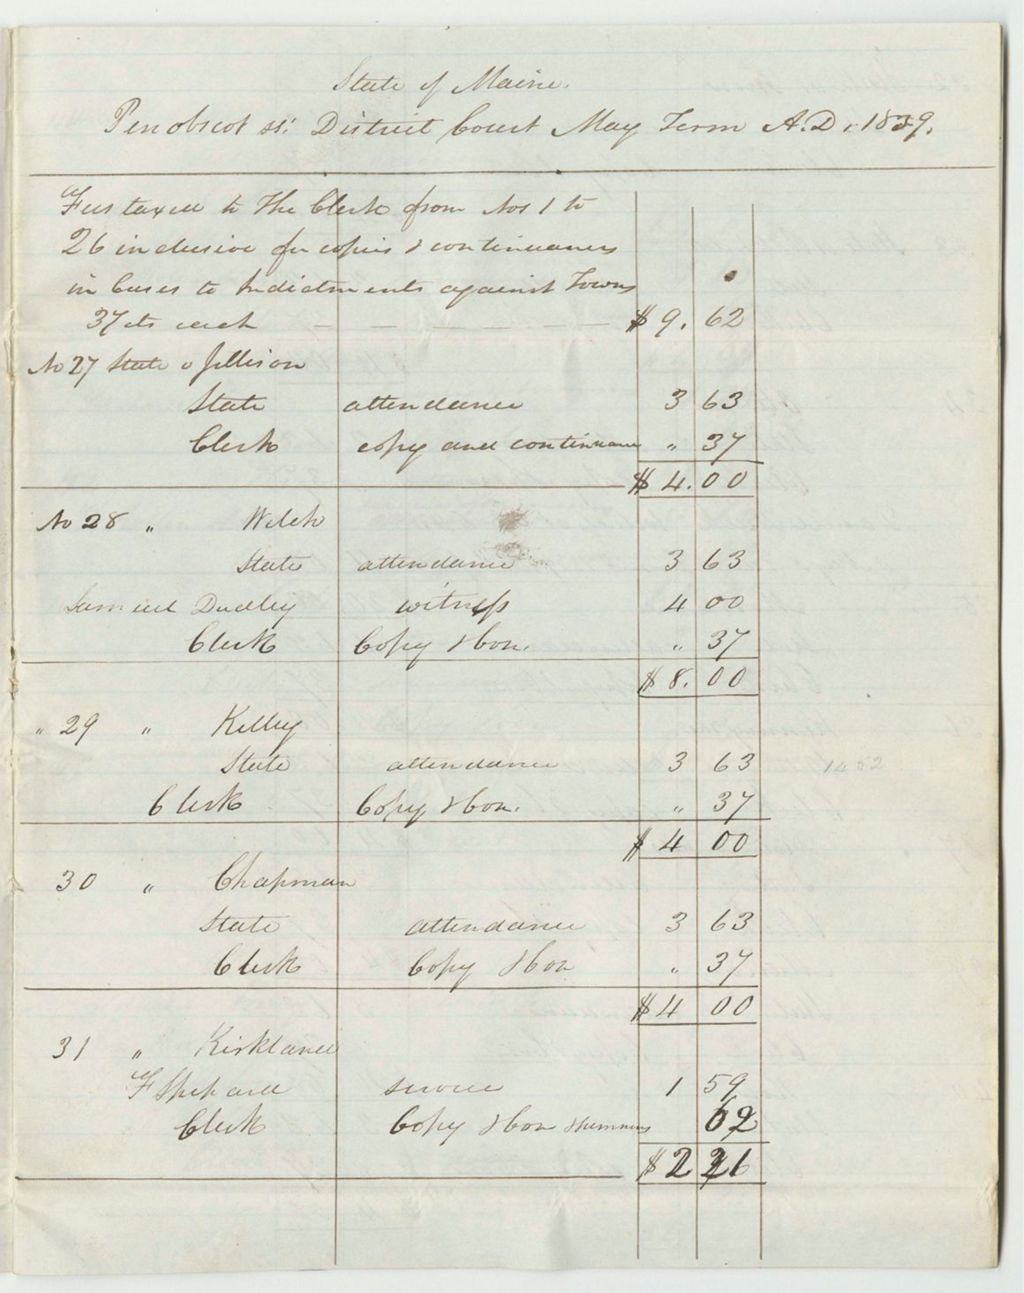 State of Maine.
Penobscot ss: District Court May Term A.D. 1839.
Fees taxed to the Clerk from Nos 1 to
26 inclusive for copies & continuances
in Cases to Indictments against Towns
37cts each $9. 62
No 27 State v Jellison
State attendance 3 63
Clerk copy and continuance " 37
$4.00
No 28 " Welch
State attendance 3 63
Samuel Dudley witness 4 00
Clerk Copy & Con. " 37
$8.00
" 29 " Kelley
State attendance 3 63 1402
Clerk Copy & Con. " 37
$4 00
30 " Chapman
State attendance 3 63
Clerk Copy & Con " 37
$4 00
31 " Kirkland
F Shepard service 1 59
Clerk Copy & Con & summons 62
$2 21